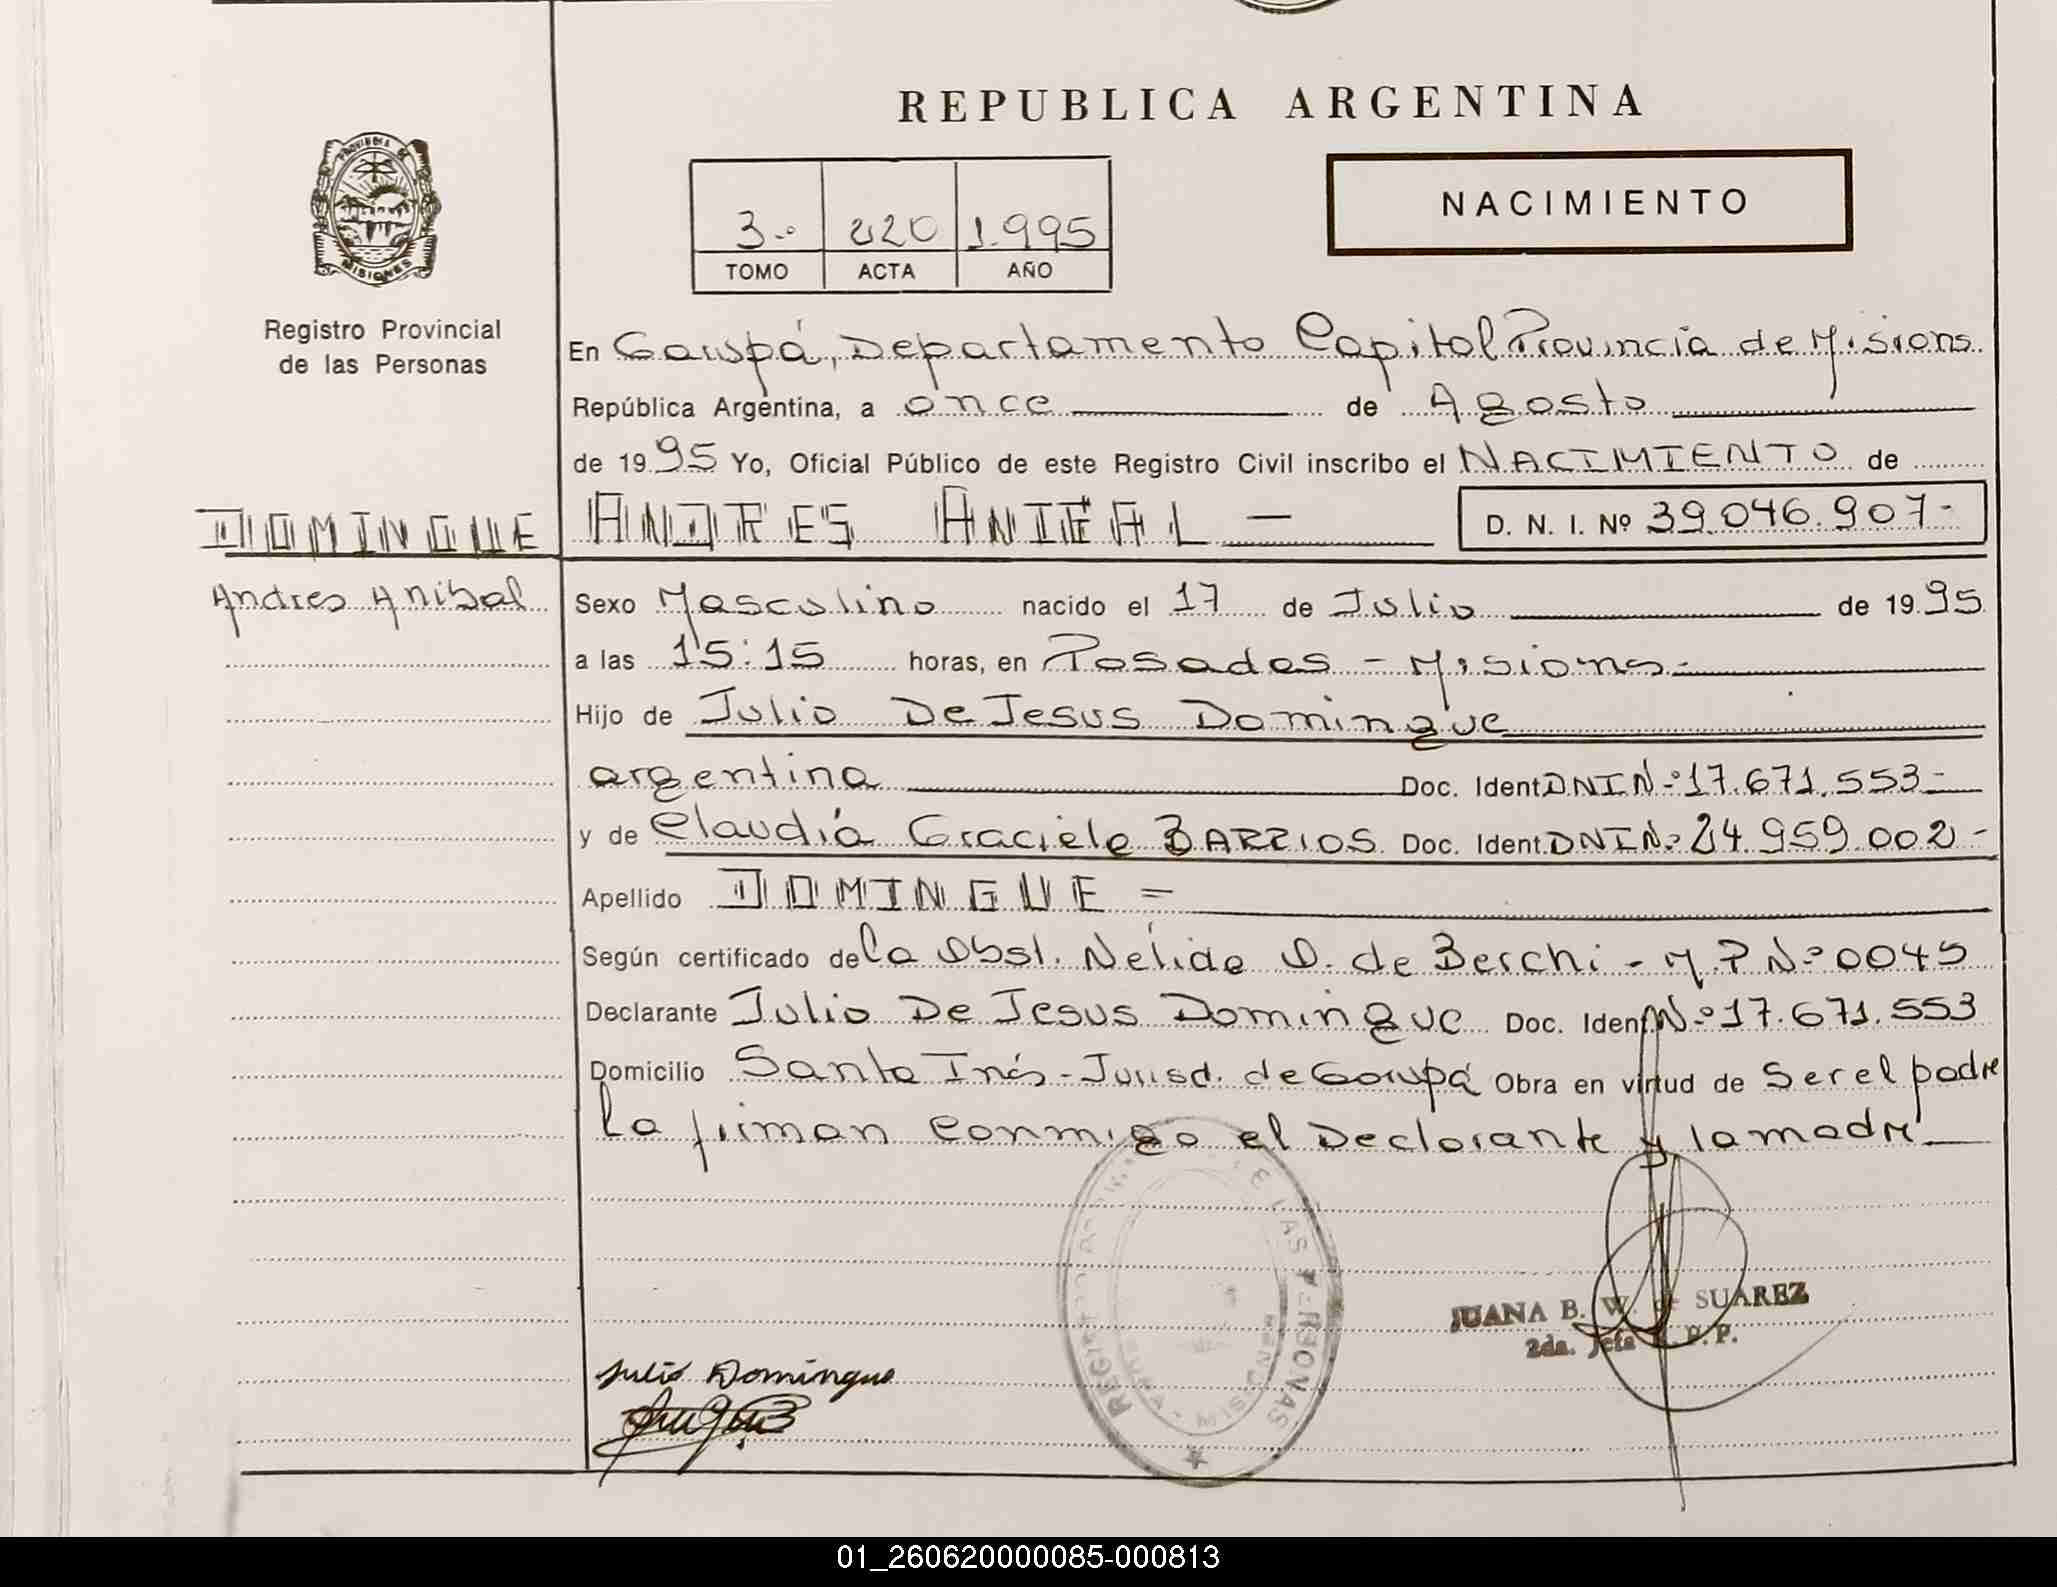 REPUBLICA ARGENTINA
NACIMIENTO
3.º 220 1.995
TOMO ACTA AÑO
PROVINCIA DE
MISIONES
Registro Provincial
de las Personas
En Garupá, Departamento Capital Provincia de Misiones
República Argentina, a once de Agosto
de 1995 Yo, Oficial Público de este Registro Civil inscribo el NACIMIENTO de
DOMINGUE ANDRES ANIBAL - D. N. I. Nº 39.046.907-
Andres Anibal
Sexo Masculino nacido el 17 de Julio de 1995
a las 15:15 horas, en Posadas - Misiones.-
Hijo de Julio De Jesus Domingue
argentina Doc. Ident. DNI Nº 17.671.553-
y de Claudia Graciela BARRIOS Doc. Ident. DNI Nº 24.959.002-
Apellido DOMINGUE =
Según certificado de la Obst. Nelida D. de Berchi - M.P Nº 0045
Declarante Julio De Jesus Domingue Doc. Ident. Nº 17.671.553
Domicilio Santa Inés - Jurisd. de Garupá Obra en virtud de Ser el padre
La firman conmigo el Declarante y la madre
REGISTRO DE LAS PERSONAS
MISIONES
JUANA B. W. de SUAREZ
2da. Jefa R. P. P.
Julio Domingue
01_260620000085-000813